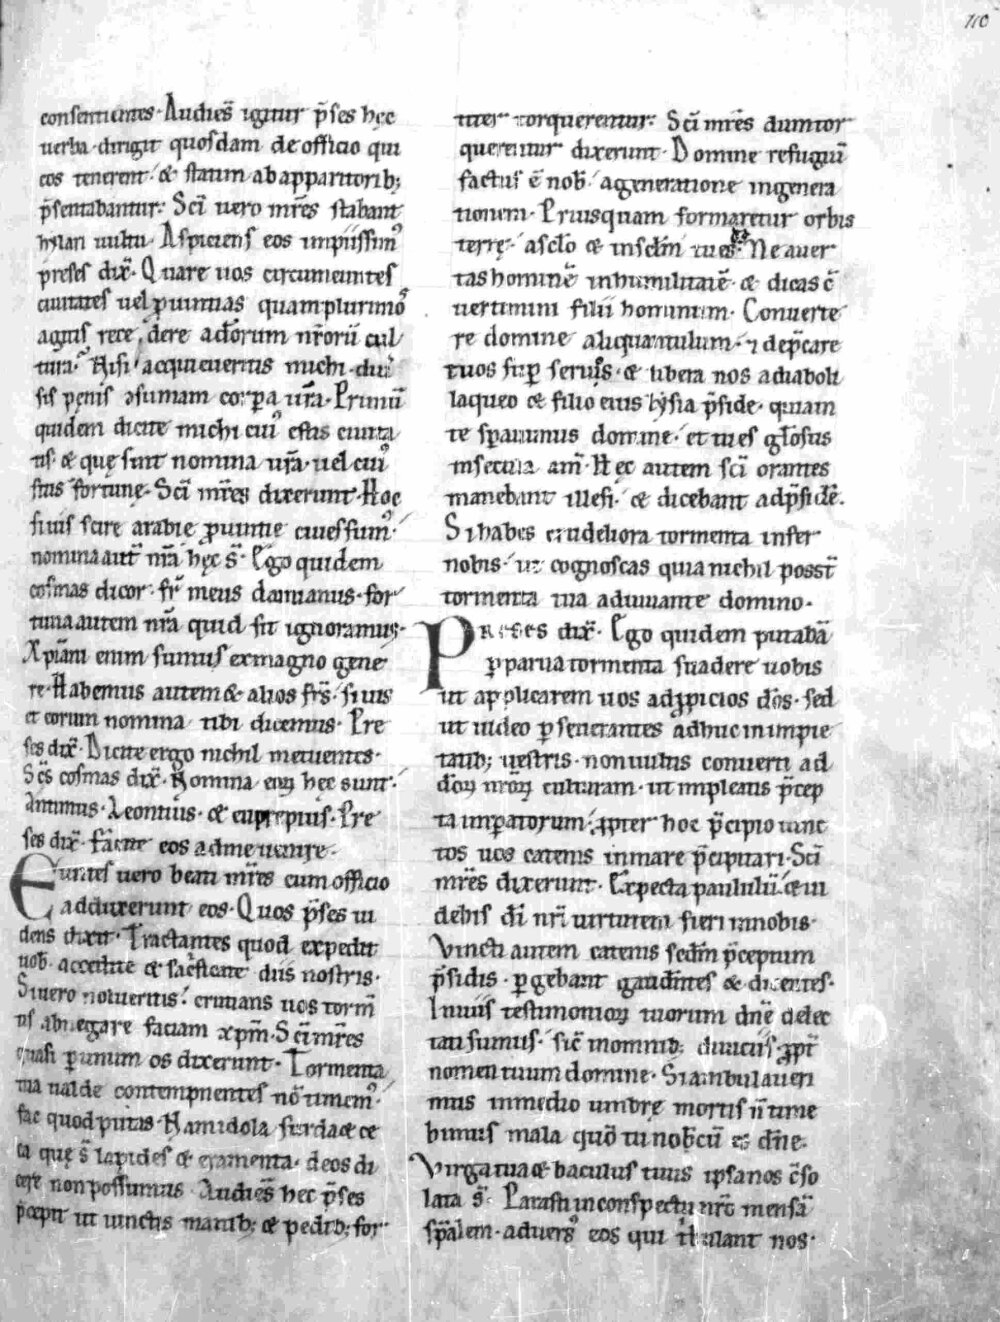 110
consentientes. Audiēs igitur p̄ses hęc
uerba. dirigit quosdam de officio qui
eos tenerent. & statim ab apparitorib;
p̄sentabantur. Sc̄i uero mr̄es stabant
hylari uultu. Aspiciens eos impiissim᾽
preses dix̄. Quare uos circumeuntes
ciuitates uel ꝓuintias quamplurimo᾽
agitis recedere a dōrum nr̄orū cul
tura. Nisi acquieueritis michi. diuer
sis pęnis ↄsumam corpora ur̄a. Primū
quidem dicite michi cui᾽ estis ciuita
tis. & quę sunt nomina ur̄a. uel cui᾽
stitis fortunę. Sc̄i mr̄es dixerunt. Hoc
si uis scire arabie ꝓuintie ciues sum᾽.
nomina aut̄ nr̄a hęc s̄. Ego quidem
cosmas dicor. fr̄ meus damianus. for
tuna autem nr̄a quid sit ignoramus.
Xp̄iani enim sumus ex magno gene
re. Habemus autem & alios fr̄s. si uis
et eorum nomina tibi dicemus. Pre
ses dix̄. Dicite ergo nichil metuentes.
Sc̄s cosmas dix̄. Nomina eoꝝ hęc sunt.
Antimus. Leontius. & euprepius. Pre
ses dix̄. facite eos ad me uenire.
Euntes uero beati mr̄es cum officio
adduxerunt eos. Quos p̄ses ui
dens dixit. Tractantes quod expedit
uob. accedite & sac̄ficate diis nostris.
Si uero nolueritis. crutians uos torm̄
tis abnegare faciam xp̄m. Sc̄i mr̄es
quasi ꝑ unum os dixerunt. Tormenta
tua ualde contempnentes nō timem᾽.
fac quod putas. Nam idola surda & ce
ca quę s̄ lapides & eramenta. deos di
cere non possumus. Audiēs hec p̄ses
p̄cepit ut uinctis manib; & pedib; for
titer torquerentur. Sc̄i mr̄es dum tor
querentur dixerunt. Domine refugiū
factus ē nob. a generatione in genera
tionem. Priusquam formaretur orbis
terrę. a sclō & in sclm̄ tu es. Ne auer
tas hominē in humilitatē. & dicas c̄
uertimini filii hominum. Conuerte
re domine aliquantulum. ⁊ dep̄care
tuos suꝑ seruos. & libera nos a diaboli
laqueo & filio eius lysia p̄side. quiam
te sperauimus domine. et tu es gl̄osus
in secula am̄. Hęc autem sc̄i orantes
manebant illesi. & dicebant ad p̄sidē.
Si habes crudeliora tormenta infer
nobis. ut cognoscas quia nichil posst̄
tormenta tua adiuuante domino.
Preses dix̄. Ego quidem putabā
ꝑ parua tormenta suadere uobis
ut applicarem uos ad ꝓpicios dōs. sed
ut uideo ꝑseuerantes adhuc in impie
tatib; uestris. non uultis conuerti ad
dōꝝ nr̄oꝝ culturam. ut impleatis p̄cep
ta imperatorum. ꝓpter hoc p̄cipio uinc
tos uos catenis in mare p̄cipitari. Sc̄i
mr̄es dixerunt. Expecta paululū. & ui
debis dī nr̄i uirtutem fieri in nobis.
Vincti autem catenis sedm̄ p̄ceptum
p̄sidis. ꝑgebant gaudētes & dicentes.
In uiis testimonioꝝ tuorum dn̄e delec
tati sumus. sic̄ in omnib; diuitiis. ꝓpt̄
nomen tuum domine. Si ambulaueri
mus in medio umbrę mortis n̄ time
bimus mala quō tu nobiscū es dn̄e.
Virga tua & baculus tuus ipsa nos c̄so
lata s̄. Parasti in conspectu nr̄o mensā
sp̄alem. aduers᾽ eos qui tribulant nos.